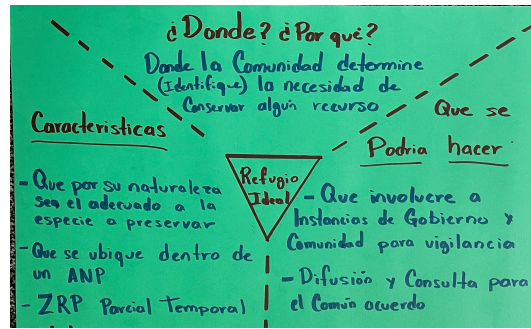 ¿Donde? ¿Por qué?
Donde la Comunidad determine
(Identifique) la necesidad de
Conservar algún recurso
Características
- Que por su naturaleza
sea el adecuado a la
especie a preservar
- Que se ubique dentro de
un ANP
- ZRP Parcial Temporal
Refugio
Ideal
Que se
Podria hacer
- Que involucre a
Instancias de Gobierno y
Comunidad para vigilancia
- Difusión y Consulta para
el Común acuerdo